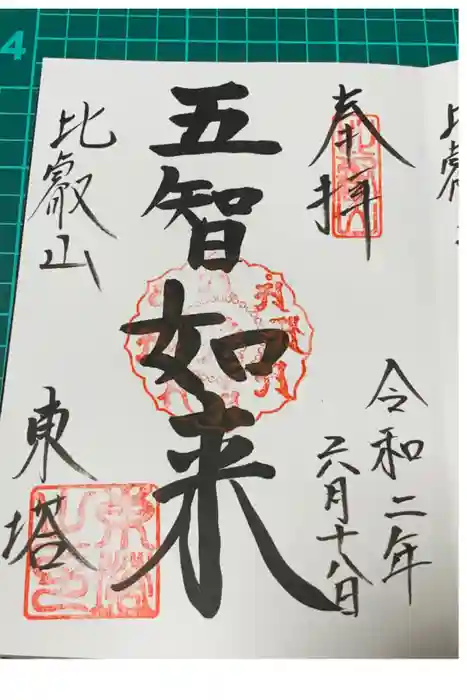 奉拝
令和二年
六月十八日
五智如来
比叡山
東塔
4
比叡